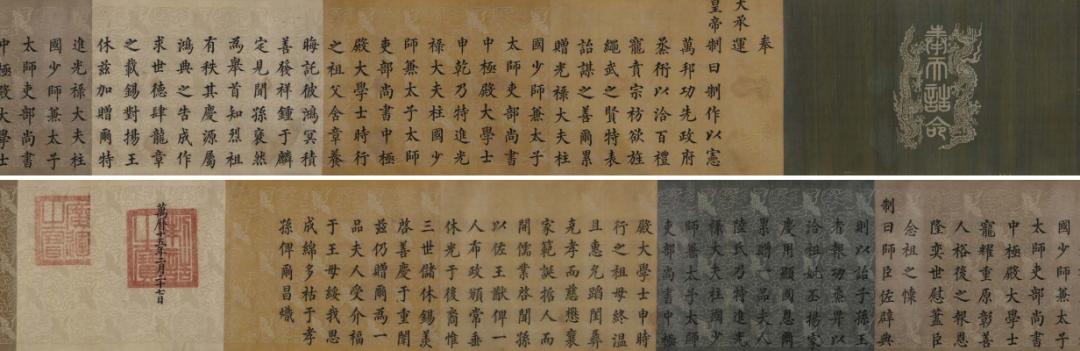 奉天誥命
奉
天承運
皇帝制曰制作以憲
萬邦功先政府
烝衎以洽百禮
寵賁宗祊欲旌
繩武之賢特表
詒謀之善爾累
贈光祿大夫柱
國少師兼太子
太師吏部尚書
中極殿大學士
申乾乃特進光
祿大夫柱國少
師兼太子太師
吏部尚書中極
殿大學士時行
之祖父含章養
晦託彼鴻冥積
善發祥鍾于麟
定見聞孫褎然
為舉首知烈祖
有秩其慶源屬
鴻典之告成作
求世德肆龍章
之載錫對揚王
休茲加贈爾特
進光祿大夫柱
國少師兼太子
太師吏部尚書
中極殿大學士
國少師兼太子
太師吏部尚書
中極殿大學士
寵耀重原彰善
人裕後之報恩
隆奕世慰藎臣
念祖之懷
制曰師臣佐辟典
則以詒子孫王
者報功烝畀以
洽祖妣丕揚家
慶用顯國恩爾
累贈一品夫人
陸氏乃特進光
祿大夫柱國少
師兼太子太師
吏部尚書中極
殿大學士申時
行之祖母終溫
且惠允蹈閨彝
克孝而慈懋襄
家範誕哲人而
開儒業啓聞孫
以佐王猷俾一
人布政頒常垂
休光于後裔惟
三世儲休錫羡
啓善慶于重閨
茲仍贈爾為一
品夫人受介福
于王母綏我思
成綿多祜于孝
孫俾爾昌熾
萬曆十五年二月二十七日
制誥之寶
廣運之寶